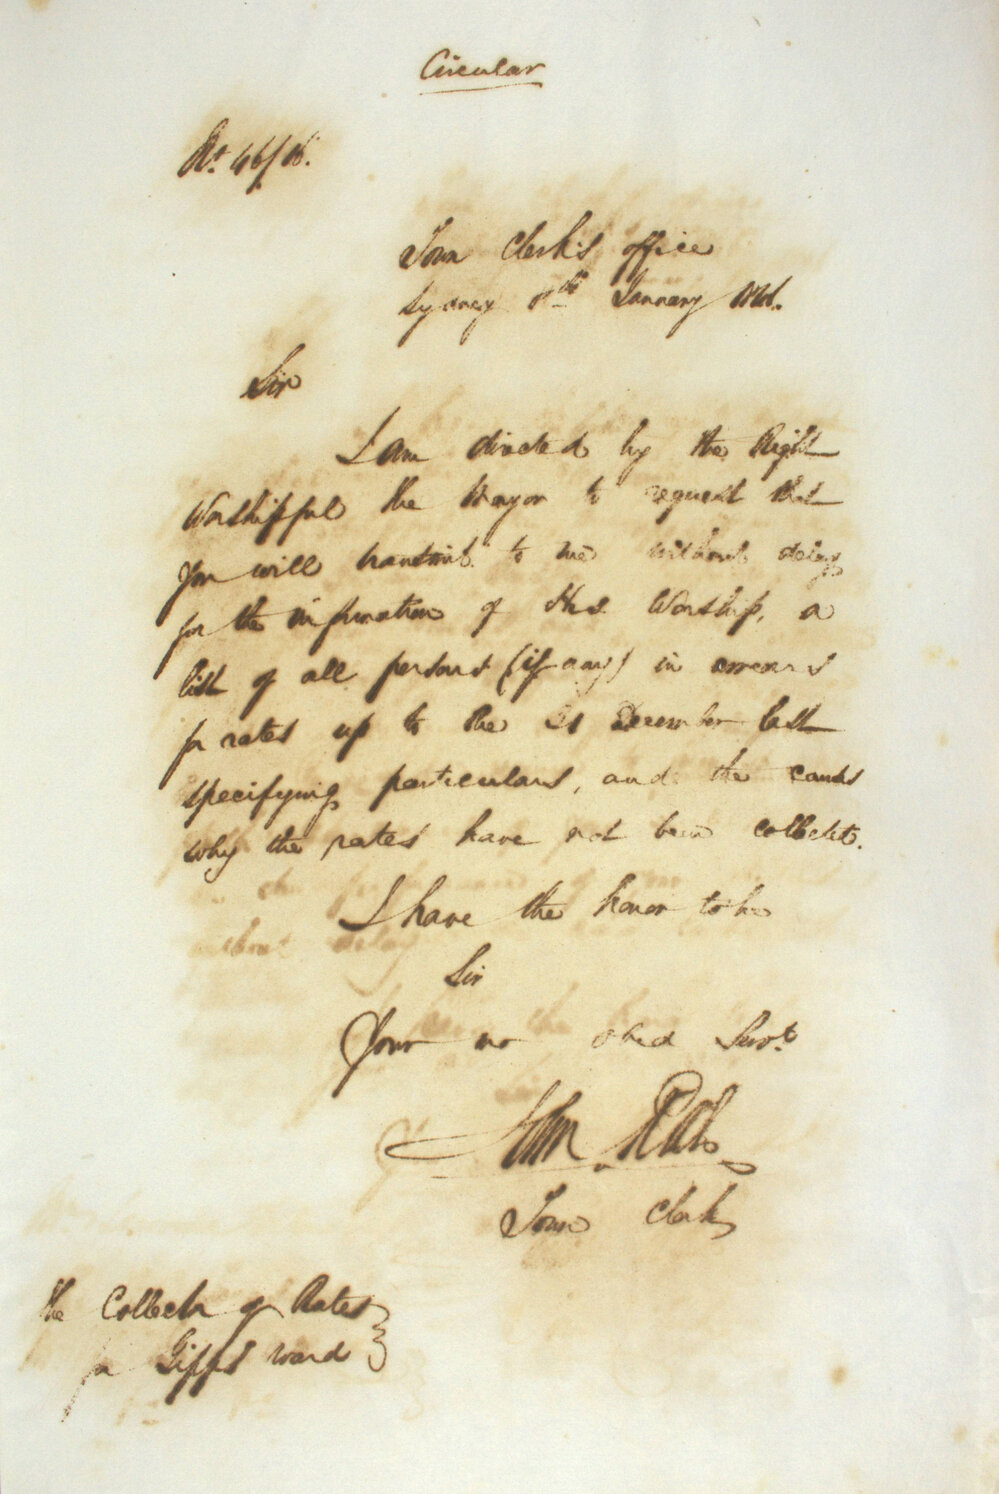 Circular
Town Clerk's office
Sydney 8th January 1846.
Sir
I am directed by the Right
Worshipful the Mayor to request that
you will transmit to me without delay
for the information of His Worship, a
list of all persons (if any) in arrears
for rates up to the 31 December last
specifying particulars, and the causes
why the rates have not been collected.
I have the honor to be
Sir
Your mo obed Servt.
John Rae
Town Clerk
The Collector of Rates
for Gipps Ward